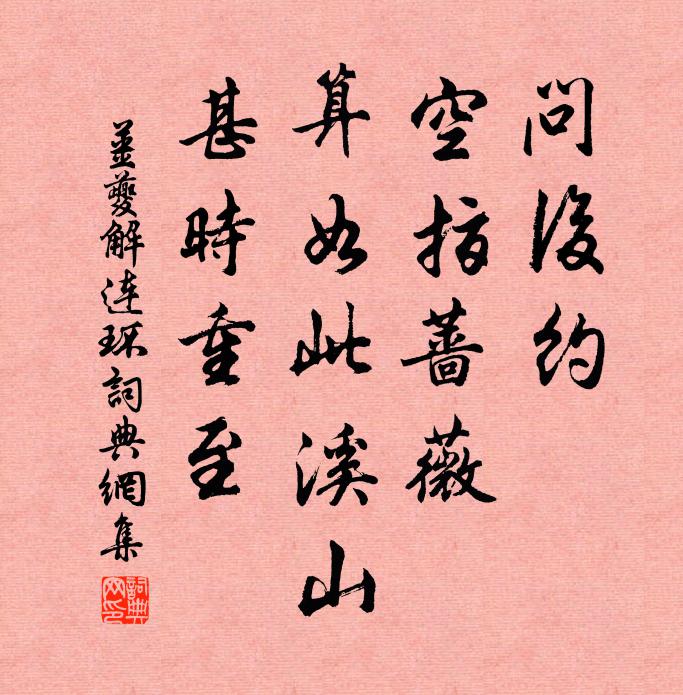 問後約
空指薔薇
算如此溪山
甚時重至
姜夔解連環詞典網集
詞典网印